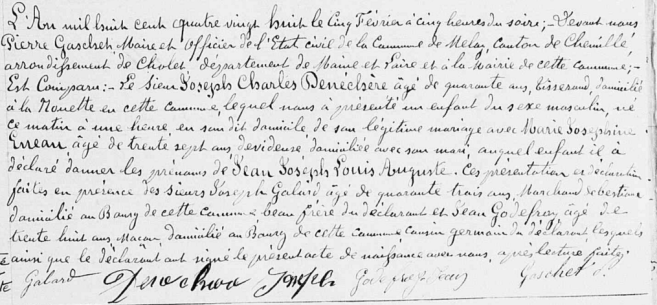 L'An mil huit cent quatre vingt huit le cinq Février à cinq heures du soire;- Devant nous
Pierre Gaschet, Maire et Officier de l'Etat civil de la Commune de Melay, canton de Chemillé,
arrondissement de Cholet département de Maine et Loire et à la Mairie de cette commune;-
Est Comparu:- Le Sieur Joseph Charles Dénéchère âgé de quarante ans, tisserand, domicilié
à la en cette commune, lequel nous à présenté un enfant du sexe masculin, né
ce matin à une heure, en son dit domicile, de son légitime mariage avec Marie Joséphine
âgée de trente sept ans dévideuse domiciliée avec son mari, auquel enfant il à
déclaré donner les prénoms de Jean Joseph Louis Auguste. Ces présentation et déclaration
faites en présence des Sieurs Joseph Galard âgé de quarante trois ans, Marchand
domicilié au Bourg de cette commune beau frère du déclarant et Jean Godefroy âgé de
trente huit ans Maçon, domicilié au Bourg de cette commune cousin germain du déclarant, lesquels
ainsi que le déclarant ont signé le présent acte de naissance avec nous, après lecture faite;
Galard Joseph Godefroy Jean Gaschet